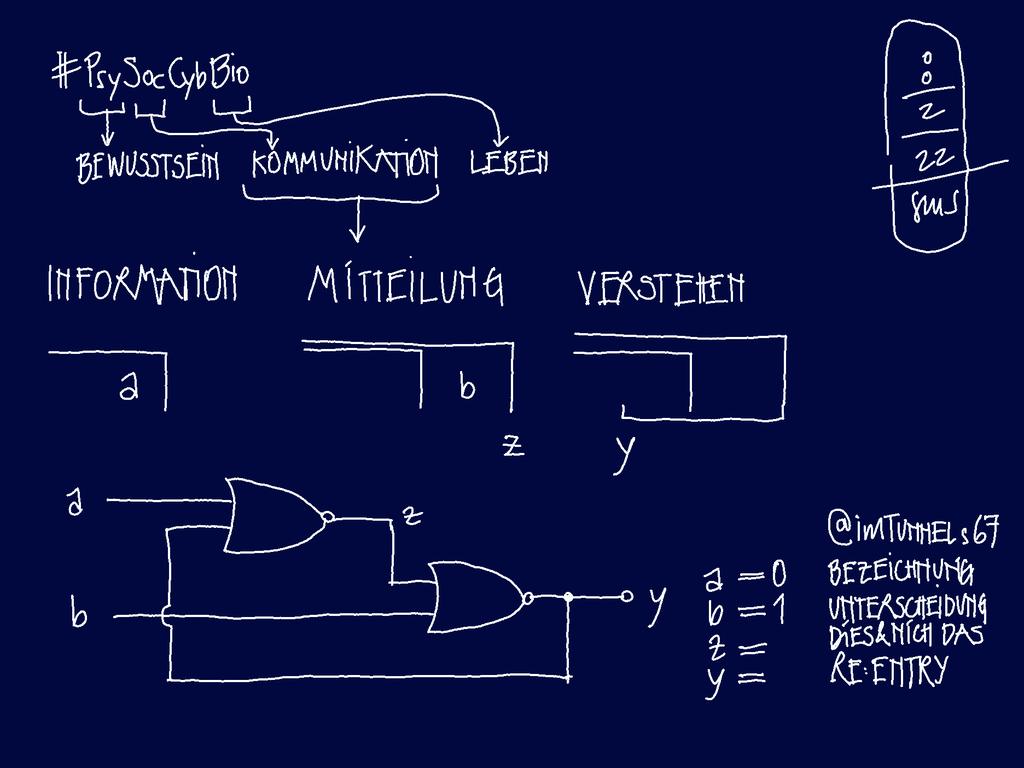 #PsySocCybBio
BEWUSSTSEIN KOMMUNIKATION LEBEN
INFORMATION MITTEILUNG VERSTEHEN
a b
z y
a z
b y
a = 0
b = 1
z =
y =
@imTUNNELs67
BEZEICHNUNG
UNTERSCHEIDUNG
DIES&NICH DAS
RE:ENTRY
8
2
22
sms